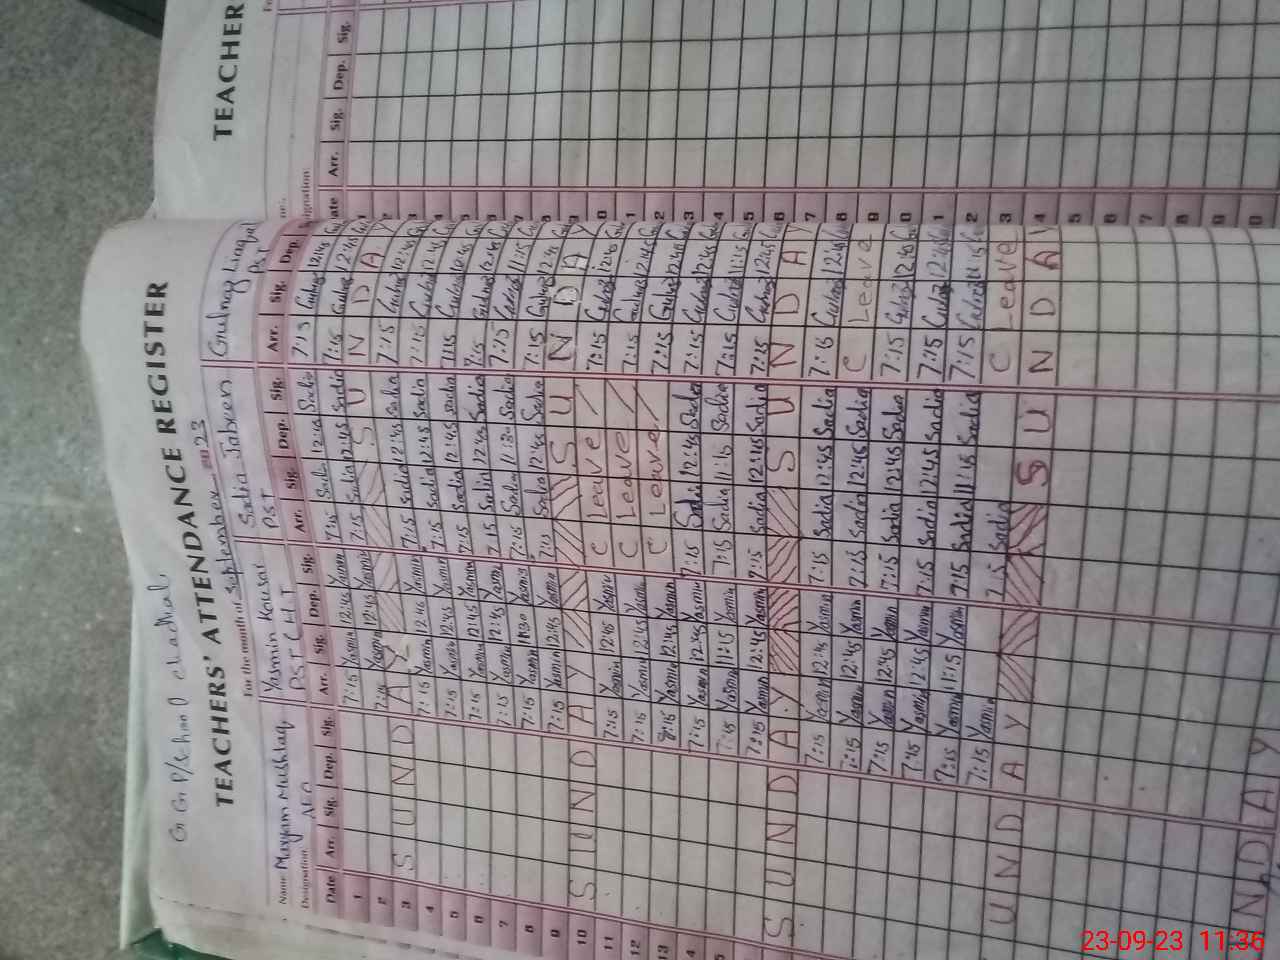 TEACHERS' ATTENDANCE REGISTER
For the month of September 2023
Name Maryam Mushtaq Yasmin Kousar Sadia Jabeen Gulnaz Liaqat
Designation AEO PST CHT PST PST
Date Arr. Sig. Dep. Sig. Arr. Sig. Dep. Sig. Arr. Sig. Dep. Sig. Arr. Sig. Dep.
1 7:15 Yasmin 12:45 Yasmin 7:15 Sadia 12:45 Sadia 7:15 Gulnaz 12:45
2 7:15 Yasmin 12:45 Yasmin 7:15 Sadia 12:45 Sadia 7:15 Gulnaz 12:45
3 S U N D A Y S U N D A Y
4 7:15 Yasmin 12:45 Yasmin 7:15 Sadia 12:45 Sadia 7:15 Gulnaz 12:45
5 7:15 Yasmin 12:45 Yasmin 7:15 Sadia 12:45 Sadia 7:15 Gulnaz 12:45
6 7:15 Yasmin 12:45 Yasmin 7:15 Sadia 12:45 Sadia 7:15 Gulnaz 12:45
7 7:15 Yasmin 12:45 Yasmin 7:15 Sadia 12:45 Sadia 7:15 Gulnaz 12:45
8 7:15 Yasmin 11:30 Yasmin 7:15 Sadia 11:30 Sadia 7:15 Gulnaz 11:15
9 7:15 Yasmin 12:45 Yasmin 7:15 Sadia 12:45 Sadia 7:15 Gulnaz 12:45
10 S U N D A Y S U N D A Y
11 7:15 Yasmin 12:45 Yasmin C Leave 7:15 Gulnaz 12:45
12 7:15 Yasmin 12:45 Yasmin C Leave 7:15 Gulnaz 12:45
13 8:15 Yasmin 12:45 Yasmin C Leave 7:15 Gulnaz 12:45
7:15 Yasmin 12:45 Yasmin 7:15 Sadia 12:45 Sadia 7:15 Gulnaz 12:45
7:15 Yasmin 11:15 Yasmin 7:15 Sadia 11:15 Sadia 7:15 Gulnaz 11:15
7:15 Yasmin 12:45 Yasmin 7:15 Sadia 12:45 Sadia 7:15 Gulnaz 12:45
S U N D A Y S U N D A Y
7:15 Yasmin 12:45 Yasmin 7:15 Sadia 12:45 Sadia 7:15 Gulnaz 12:45
7:15 Yasmin 12:45 Yasmin 7:15 Sadia 12:45 Sadia C Leave
7:15 Yasmin 12:45 Yasmin 7:15 Sadia 12:45 Sadia 7:15 Gulnaz 12:45
7:15 Yasmin 12:45 Yasmin 7:15 Sadia 12:45 Sadia 7:15 Gulnaz 12:45
7:15 Yasmin 11:15 Yasmin 7:15 Sadia 11:15 Sadia 7:15 Gulnaz 11:15
7:15 Yasmin 7:15 Sadia C Leave
U N D A Y S U N D A Y
U N D A Y
TEACHER
Arr. Sig. Dep. Sig.
23-09-23 11:36